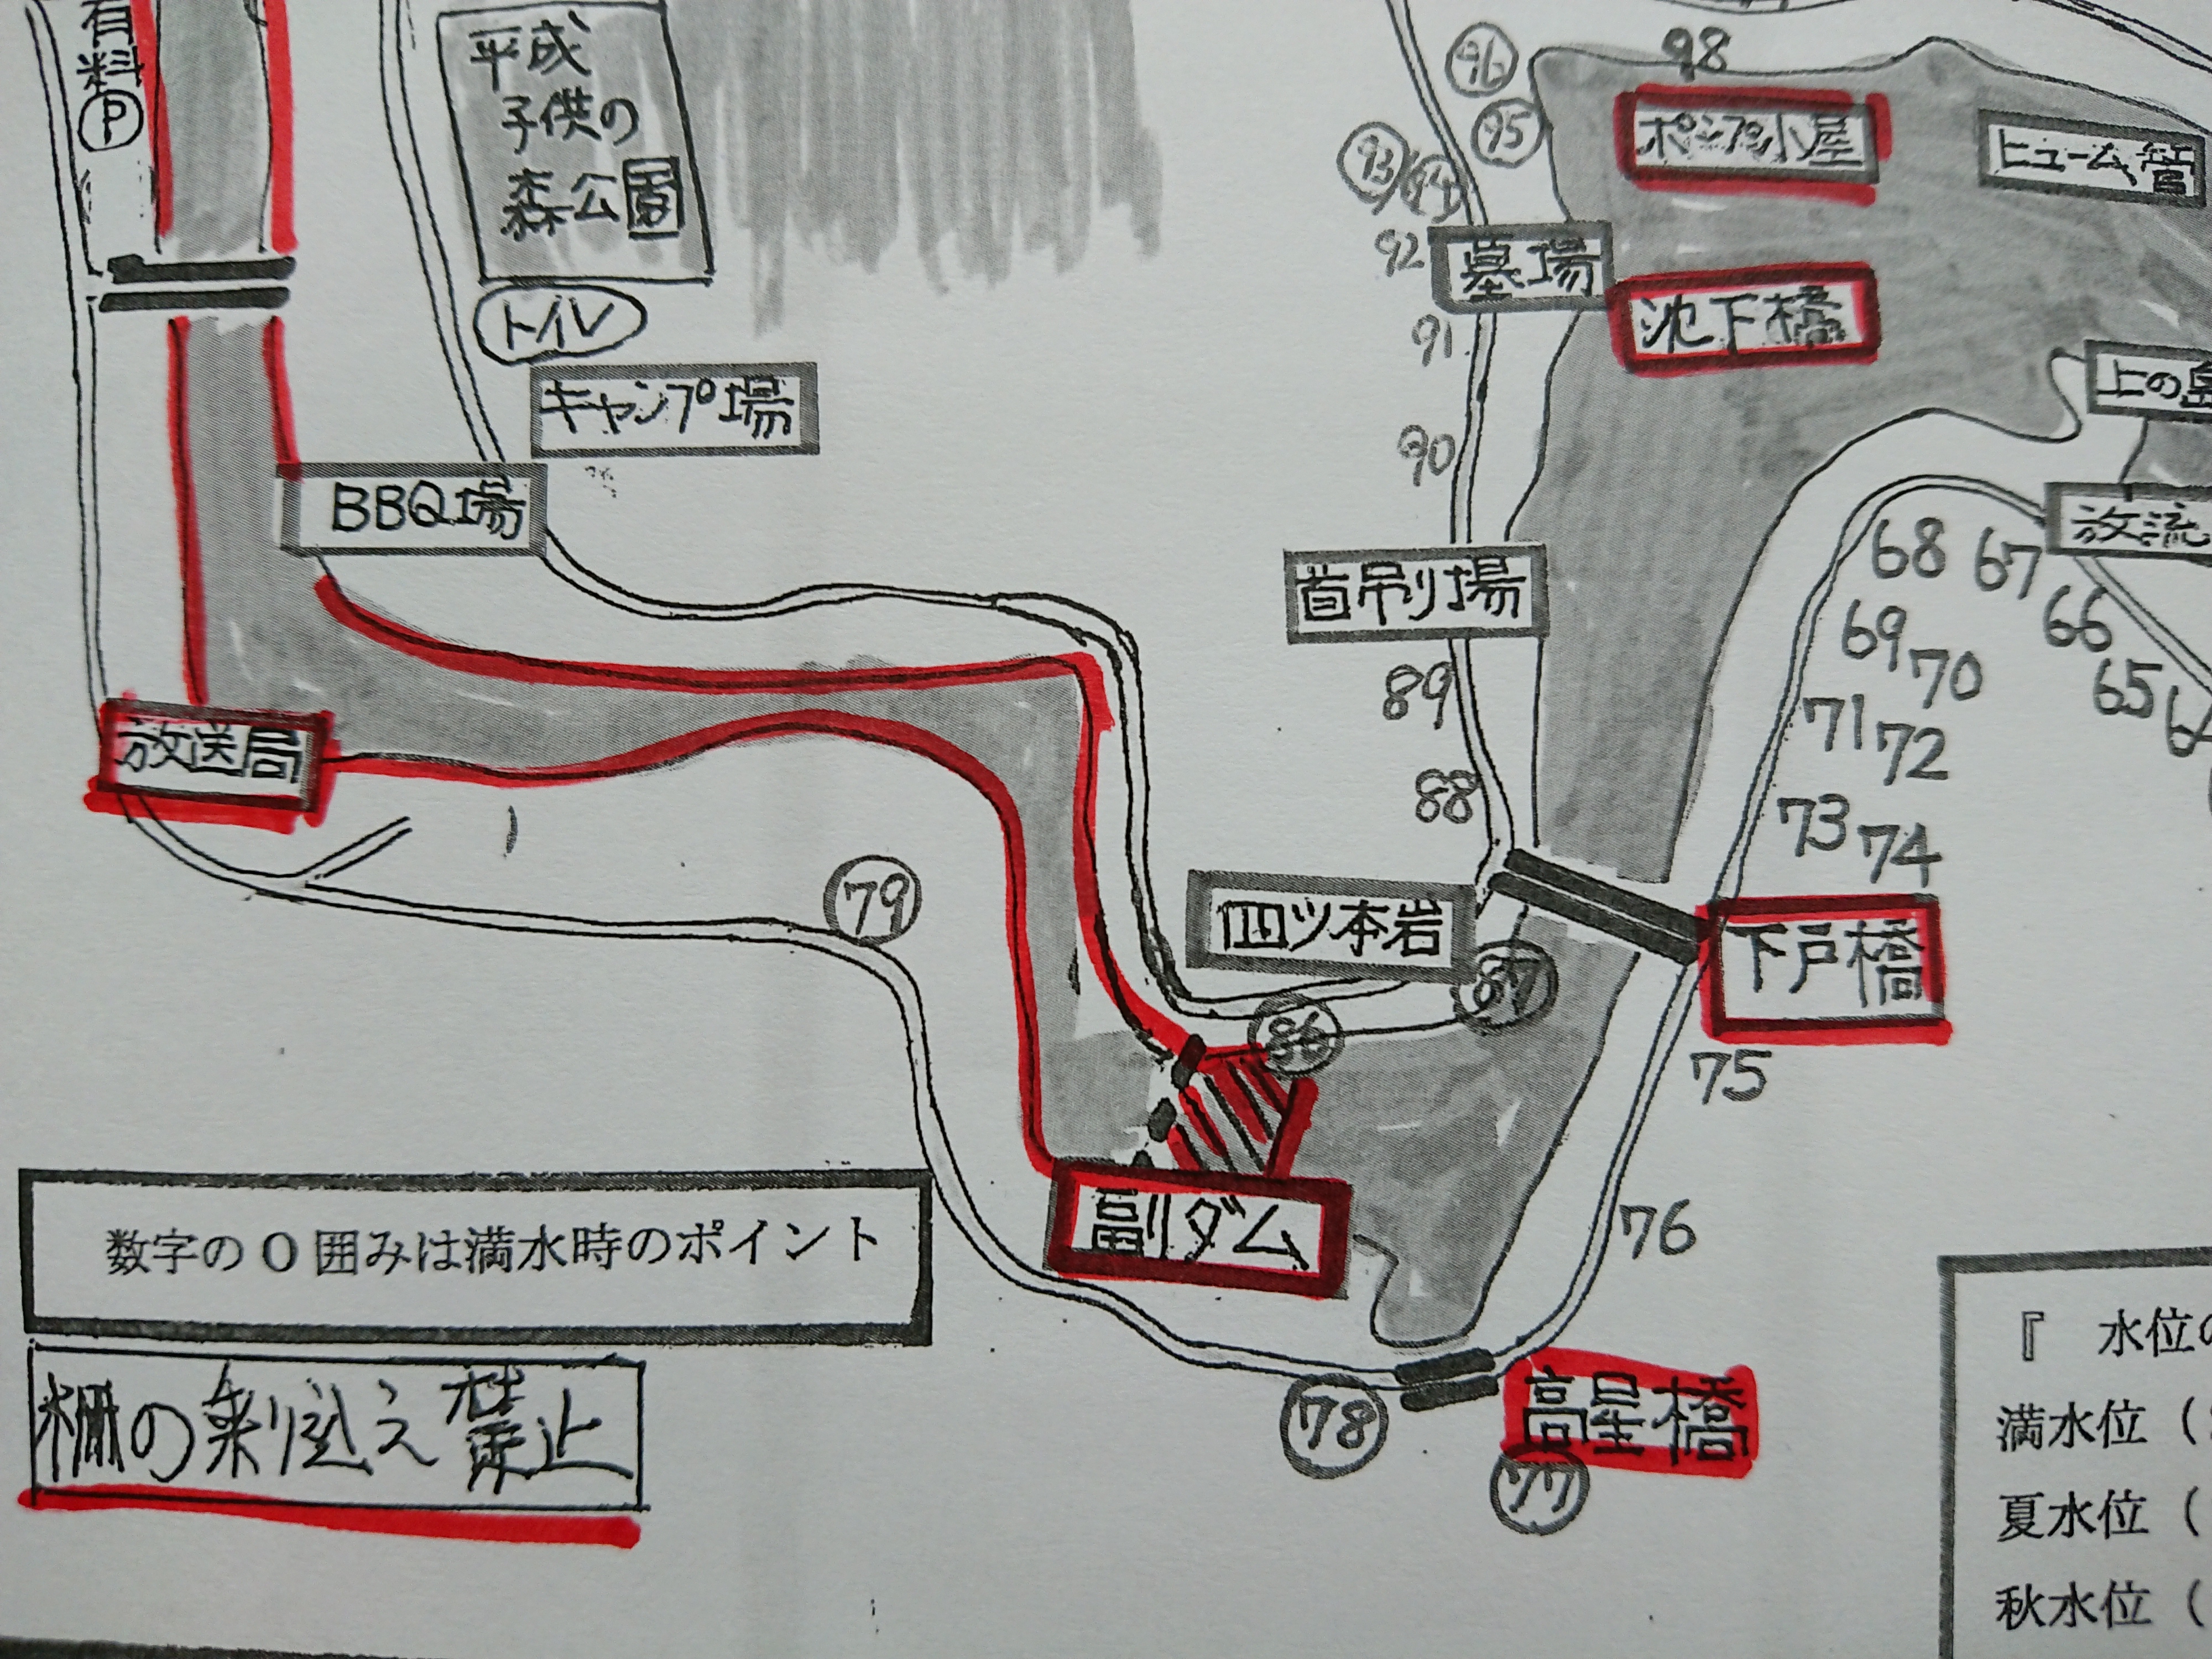 有料
P
平成
子供の
森公園
トイレ
キャンプ場
BBQ場
放送局
79
96
95
98
ポンプ小屋
ヒューム管
93
94
92
墓場
池下橋
91
上の島
90
放流
首吊り場
68
67
66
69
70
65
89
71
72
88
73
74
四ツ本岩
下戸橋
87
86
75
副ダム
76
高星橋
78
77
数字の〇囲みは満水時のポイント
柵の乗り越え禁止
『 水位の
満水位(
夏水位(
秋水位(